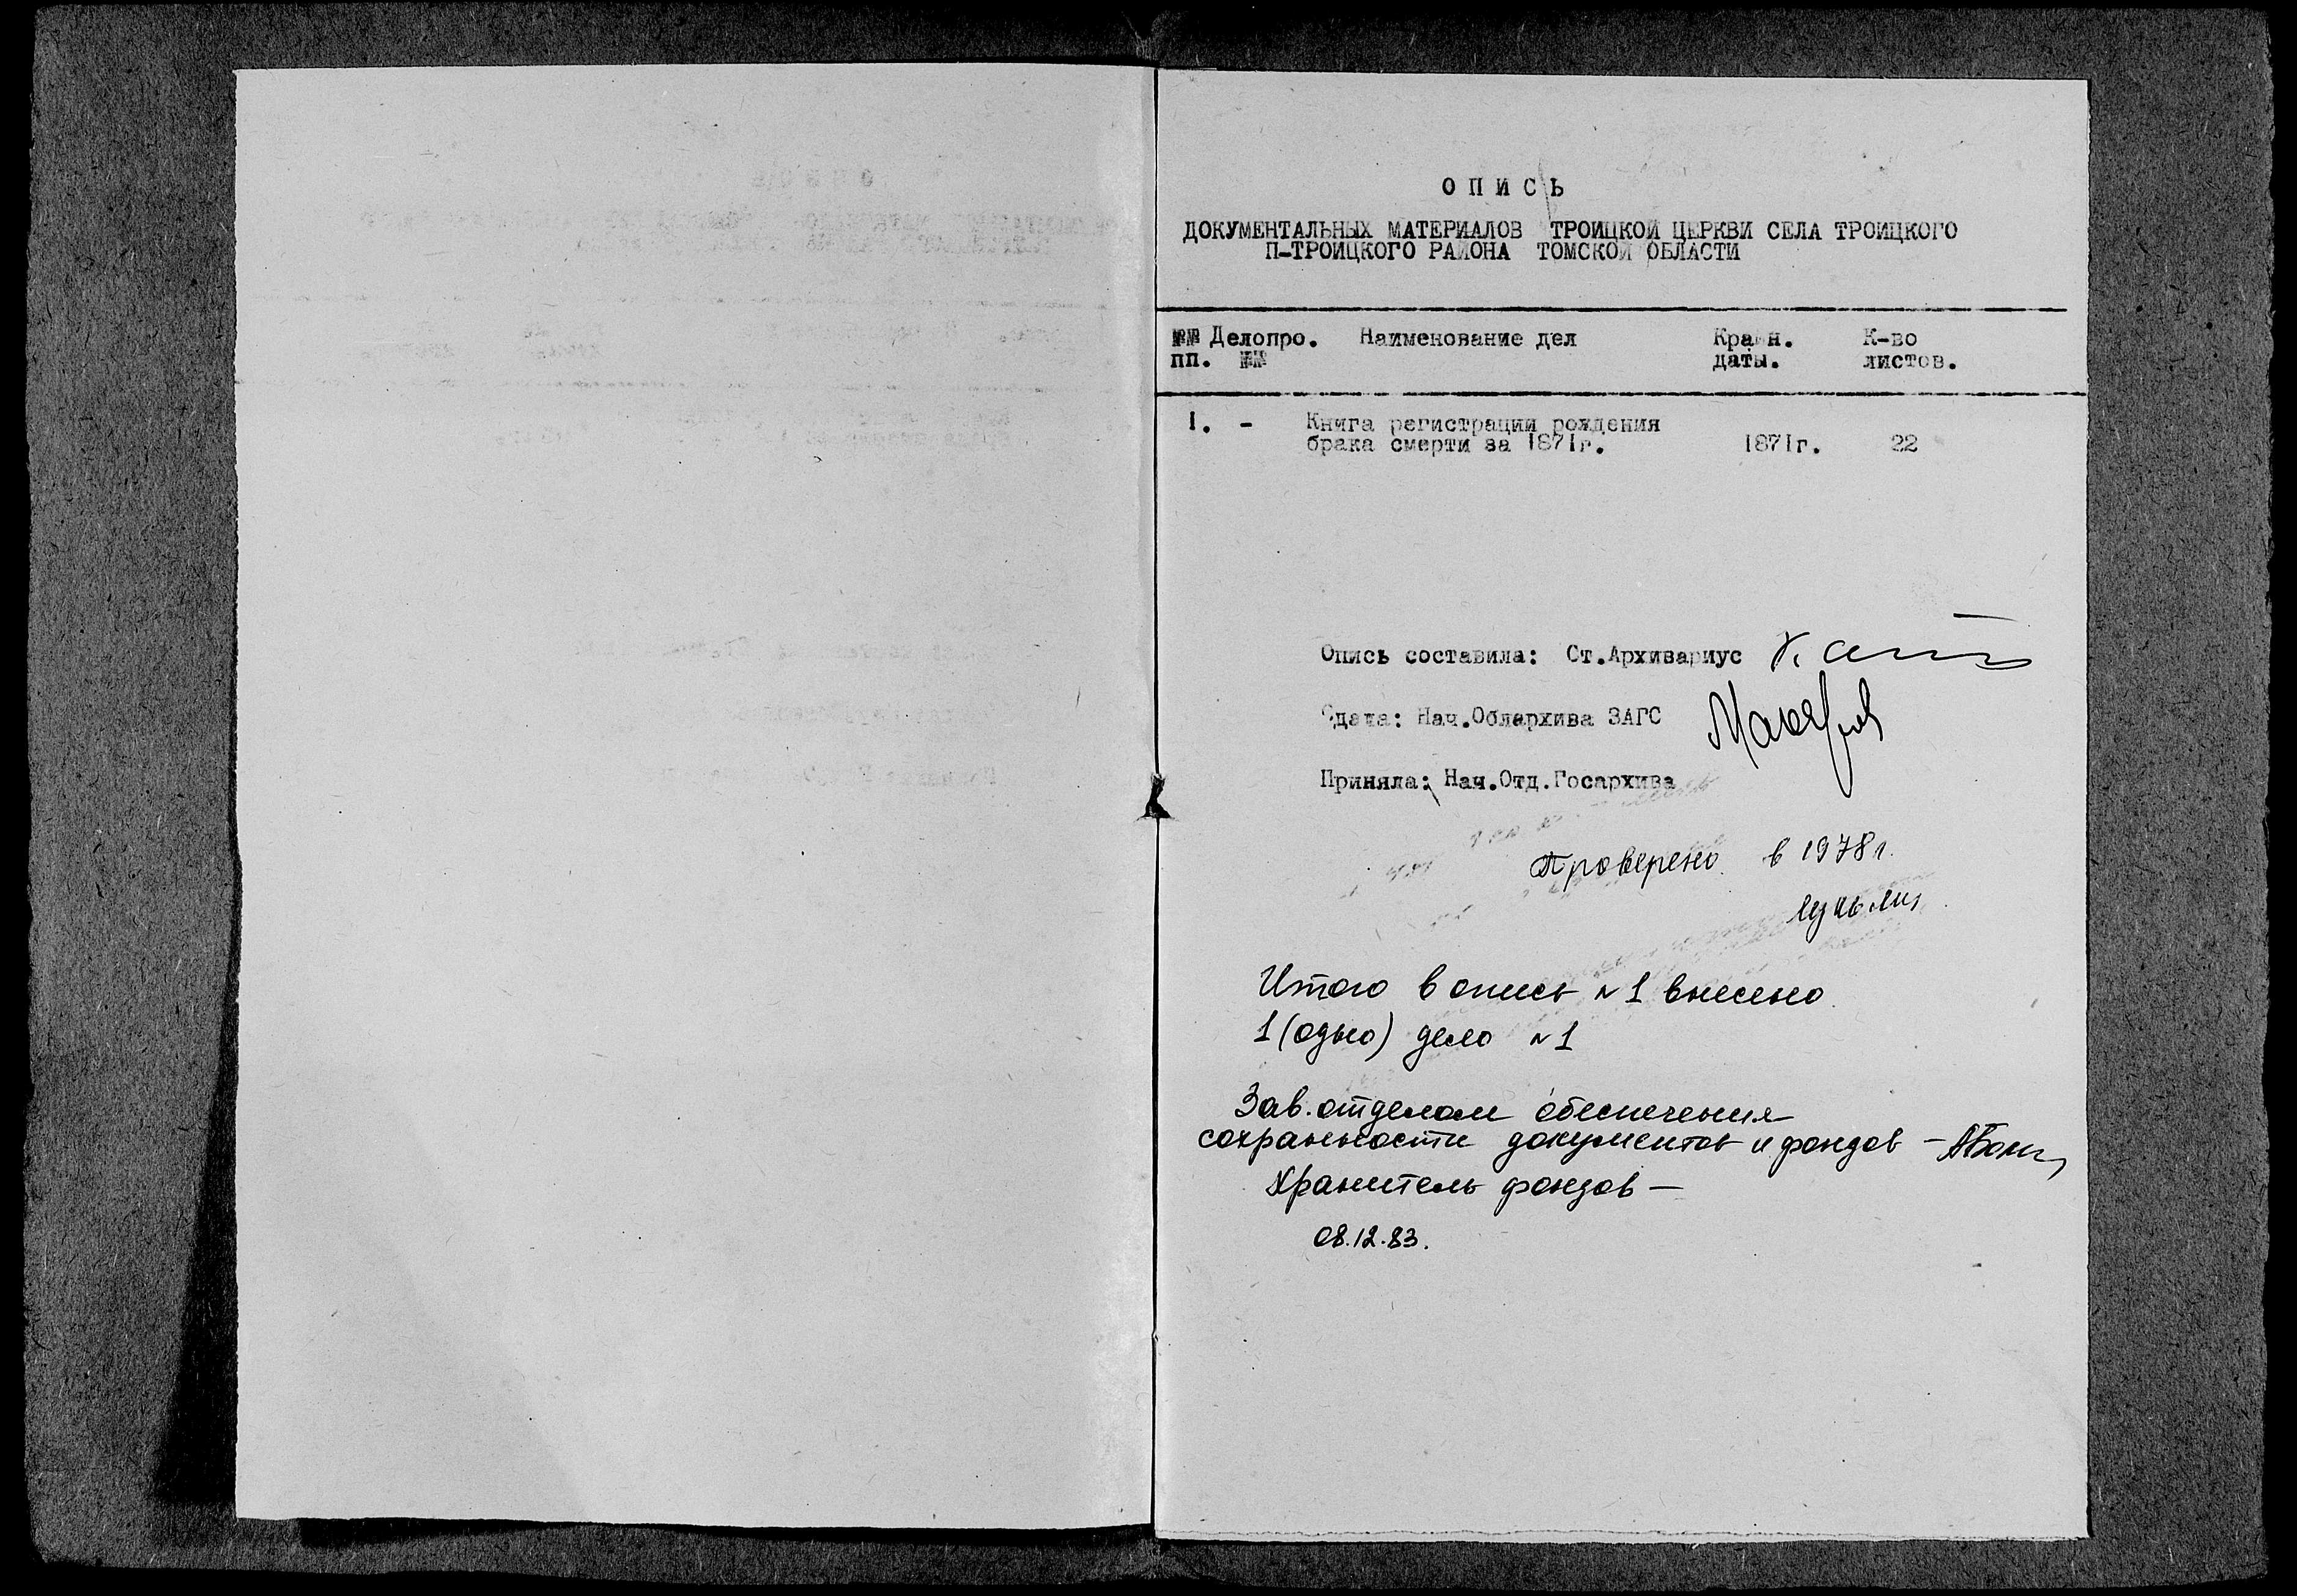 ОПИСЬ
ДОКУМЕНТАЛЬНЫХ МАТЕРИАЛОВ ТРОИЦКОЙ ЦЕРКВИ СЕЛА ТРОИЦКОГО
П-ТРОИЦКОГО РАЙОНА ТОМСКОЙ ОБЛАСТИ
№№ Делопро. Наименование дел Крайн. К-во
пп. №№ даты. листов.
1. - Книга регистрации рождения
брака смерти за 1871г. 1871г. 22
Опись составила: Ст.Архивариус
Сдала: Нач.Облархива ЗАГС
Приняла: Нач.Отд.Госархива
Проверено в 1978 г.
Итого в опись №1 внесено
1 (одно) дело №1
Зав. отделом обеспечения
сохранности документов и фондов –
Хранитель фондов –
08.12.83.